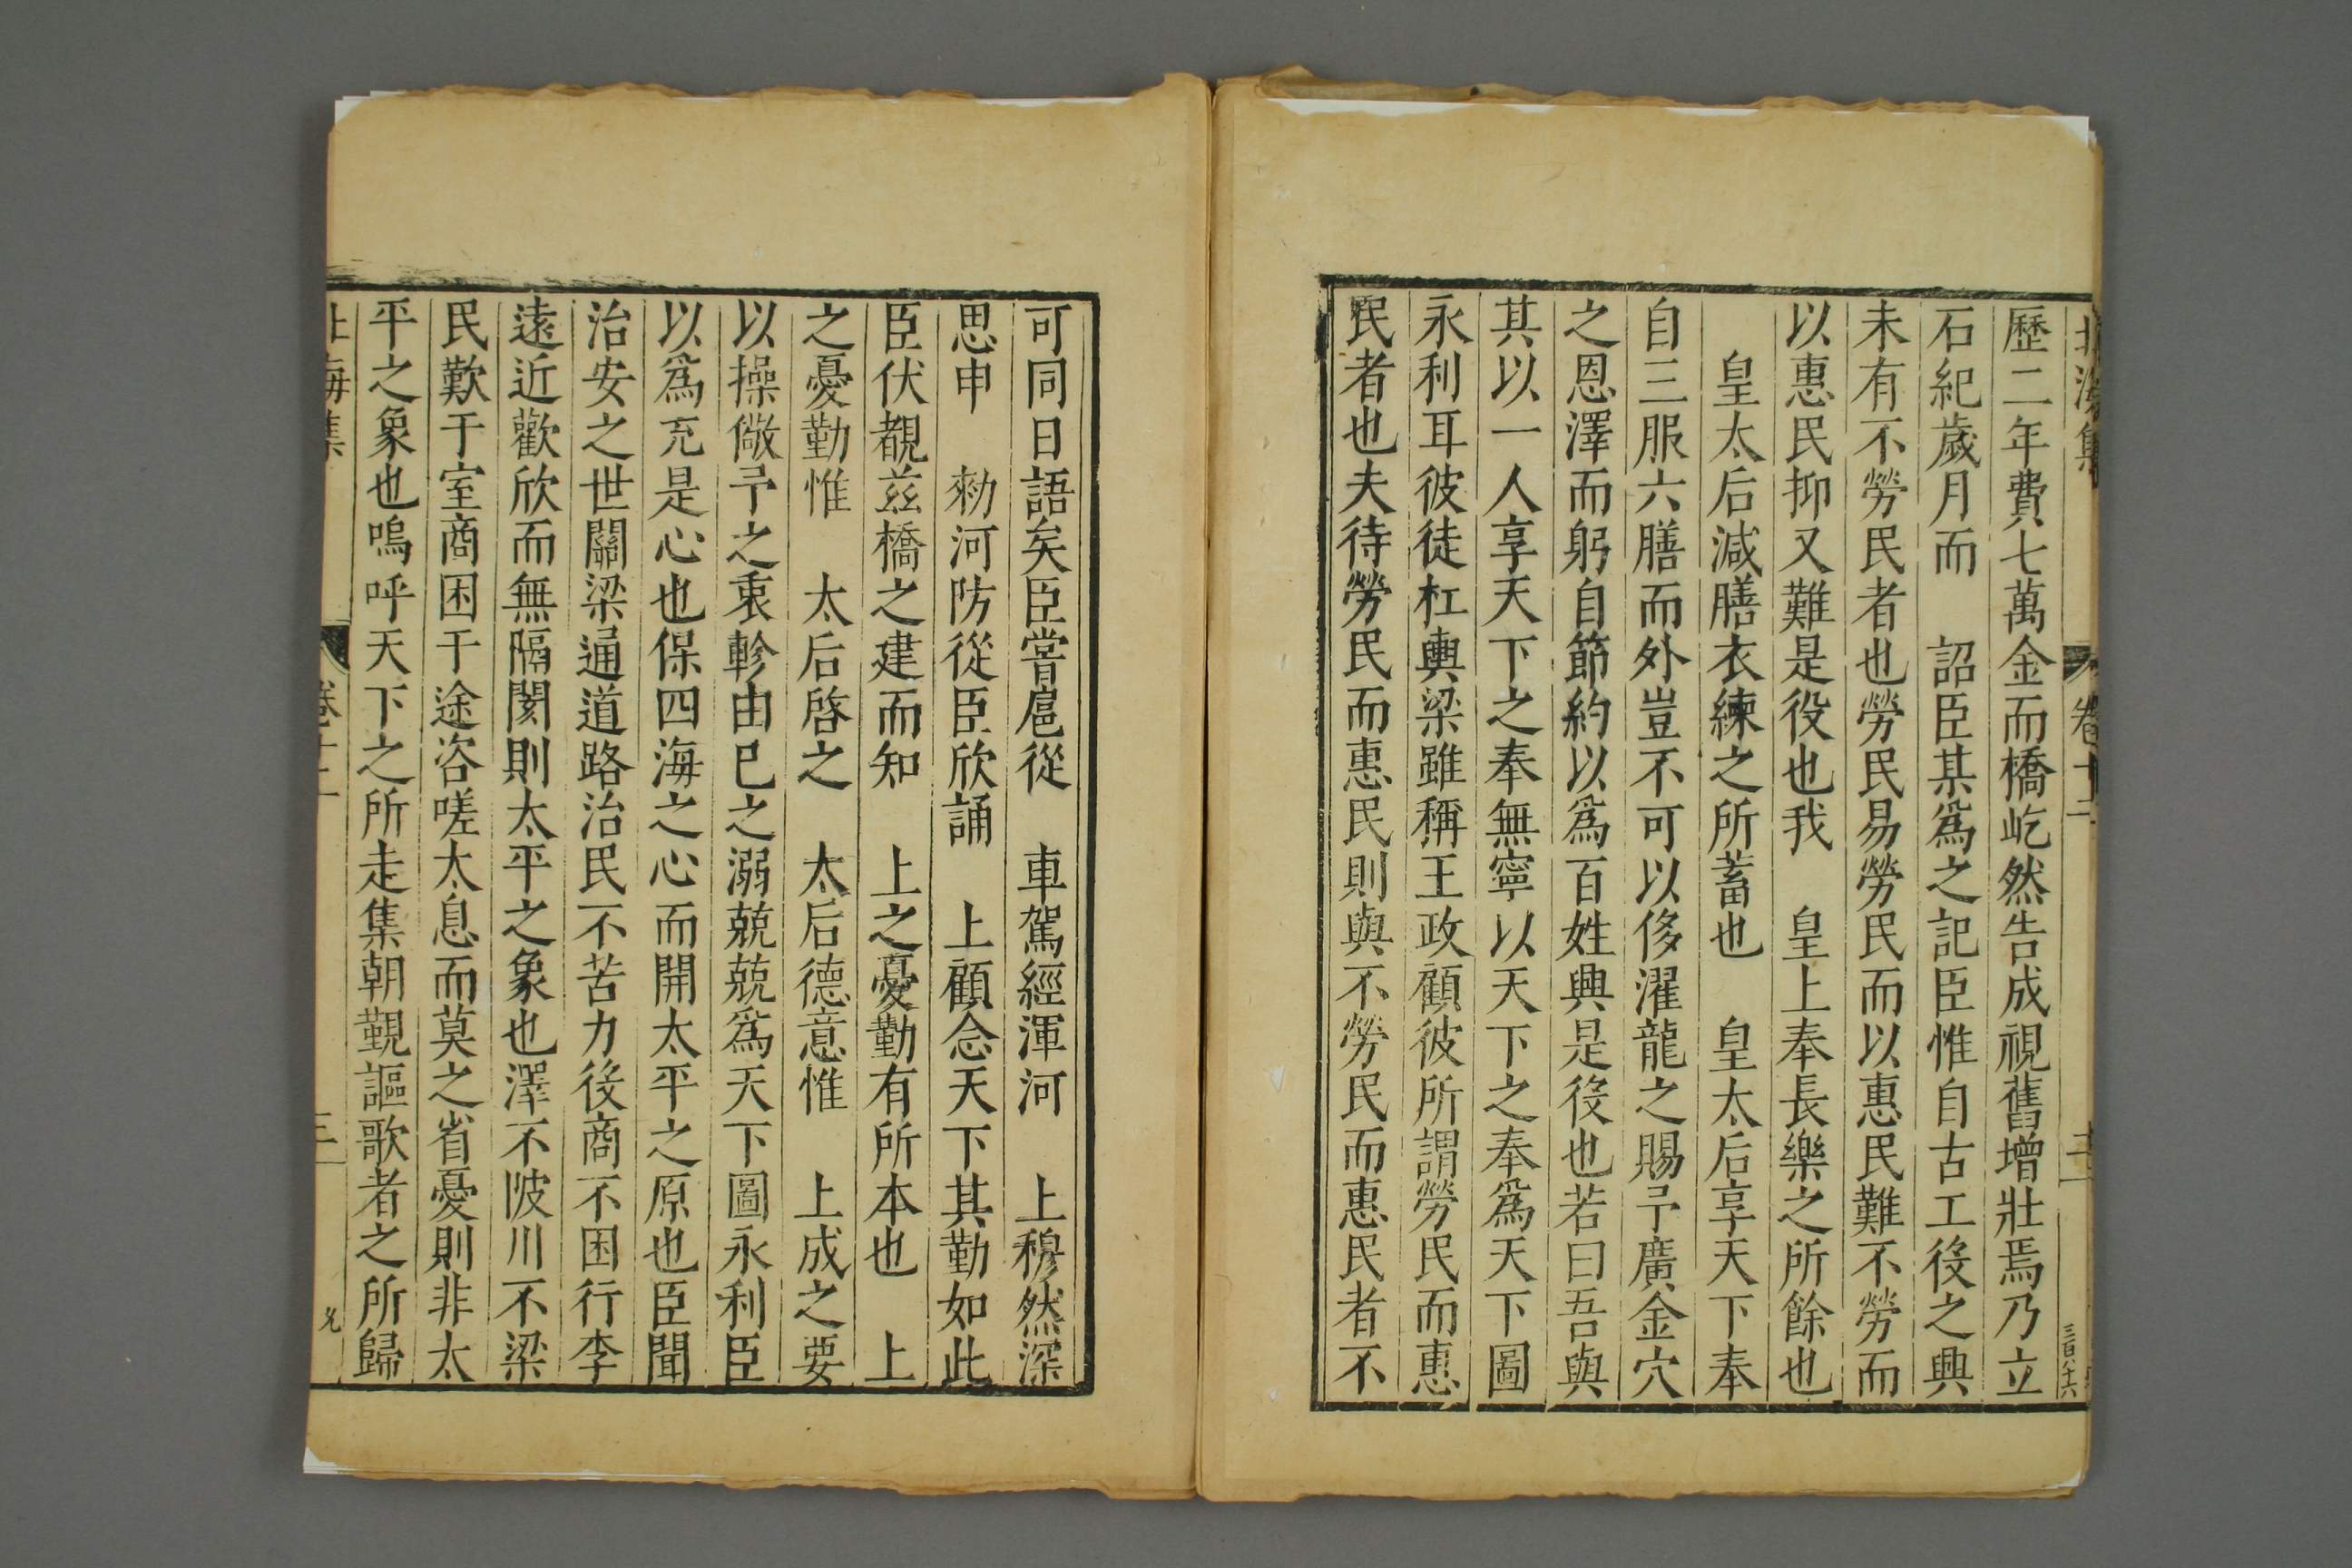 北海集 卷十二 十二 三百六十六
歷二年費七萬金而橋屹然告成視舊增壯焉乃立
石紀歲月而 詔臣某爲之記臣惟自古工役之興
未有不勞民者也勞民易勞民而以惠民難不勞而
以惠民抑又難是役也我 皇上奉長樂之所餘也
皇太后減膳衣練之所蓄也 皇太后享天下奉
自三服六膳而外豈不可以侈濯龍之賜予廣金穴
之恩澤而躬自節約以爲百姓興是役也若曰吾與
其以一人享天下之奉無寧以天下之奉爲天下圖
永利耳彼徒杠輿梁雖稱王政顧彼所謂勞民而惠
民者也夫待勞民而惠民則與不勞民而惠民者不
可同日語矣臣嘗扈從 車駕經渾河 上穆然深
思申 勑河防從臣欣誦 上顧念天下其勤如此
臣伏覩茲橋之建而知 上之憂勤有所本也 上
之憂勤惟 太后啓之 太后德意惟 上成之要
以操儆予之衷軫由已之溺兢兢爲天下圖永利臣
以爲充是心也保四海之心而開太平之原也臣聞
治安之世關梁通道路治民不苦力役商不困行李
遠近歡欣而無隔閡則太平之象也澤不陂川不梁
民歎于室商困于途咨嗟太息而莫之省憂則非太
平之象也嗚呼天下之所走集朝覲謳歌者之所歸
北海集 卷十二